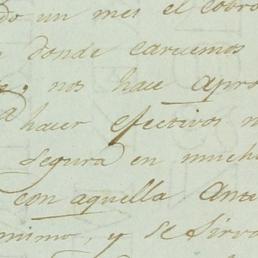 do un mes el cobro
donde carecemos
nos hace apro
hacer efectivos n
segura en mucho
con aquella ante
mismo, y se sirva